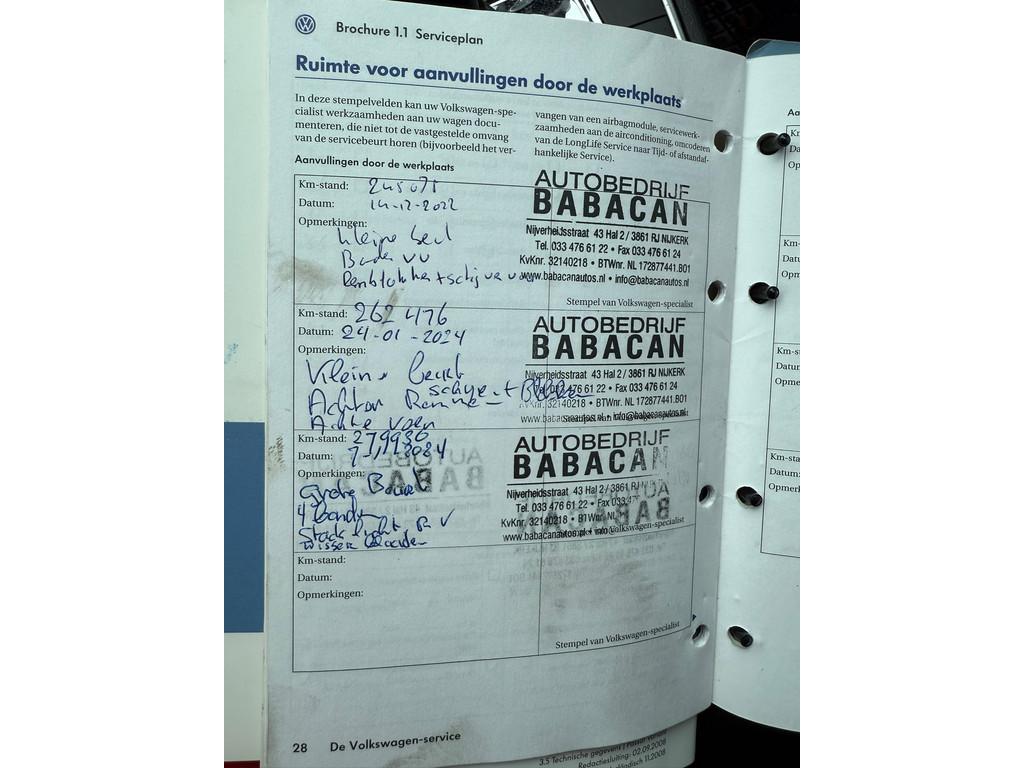 Brochure 1.1 Serviceplan
Ruimte voor aanvullingen door de werkplaats
In deze stempelvelden kan uw Volkswagen-spe-
cialist werkzaamheden aan uw wagen docu-
menteren, die niet tot de vastgestelde omvang
van de servicebeurt horen (bijvoorbeeld het ver-
vangen van een airbagmodule, servicewerk-
zaamheden aan de airconditioning, omcoderen
van de LongLife Service naar Tijd- of afstandaf-
hankelijke Service).
Aanvullingen door de werkplaats
Km-stand: 245071
Datum: 14-12-2022
Opmerkingen:
kleine
Banden VV
AUTOBEDRIJF
BABACAN
Nijverheidsstraat 43 Hal 2 / 3861 RJ NIJKERK
Tel. 033 476 61 22 • Fax 033 476 61 24
KvKnr. 32140218 • BTWnr. NL 172877441.B01
www.babacanautos.nl • info@babacanautos.nl
Stempel van Volkswagen-specialist
Km-stand: 262 476
Datum: 24-01-2024
Opmerkingen:
Kleine beurt
Achter
AUTOBEDRIJF
BABACAN
Nijverheidsstraat 43 Hal 2 / 3861 RJ NIJKERK
Tel. 033 476 61 22 • Fax 033 476 61 24
KvKnr. 32140218 • BTWnr. NL 172877441.B01
www.babacanautos.nl • info@babacanautos.nl
Km-stand: 279936
Datum:
Opmerkingen:
Grote Beurt
4 Banden
AUTOBEDRIJF
BABACAN
Nijverheidsstraat 43 Hal 2 / 3861 RJ
Tel. 033 476 61 22 • Fax 033 47
KvKnr. 32140218 • BTWnr. NL
www.babacanautos.nl • info@babacanautos.nl
Km-stand:
Datum:
Opmerkingen:
Stempel van Volkswagen-specialist
28 De Volkswagen-service
3.5 Technische gegevens | Passat Variant
Redactiesluiting: 02.09.2008
11.2008